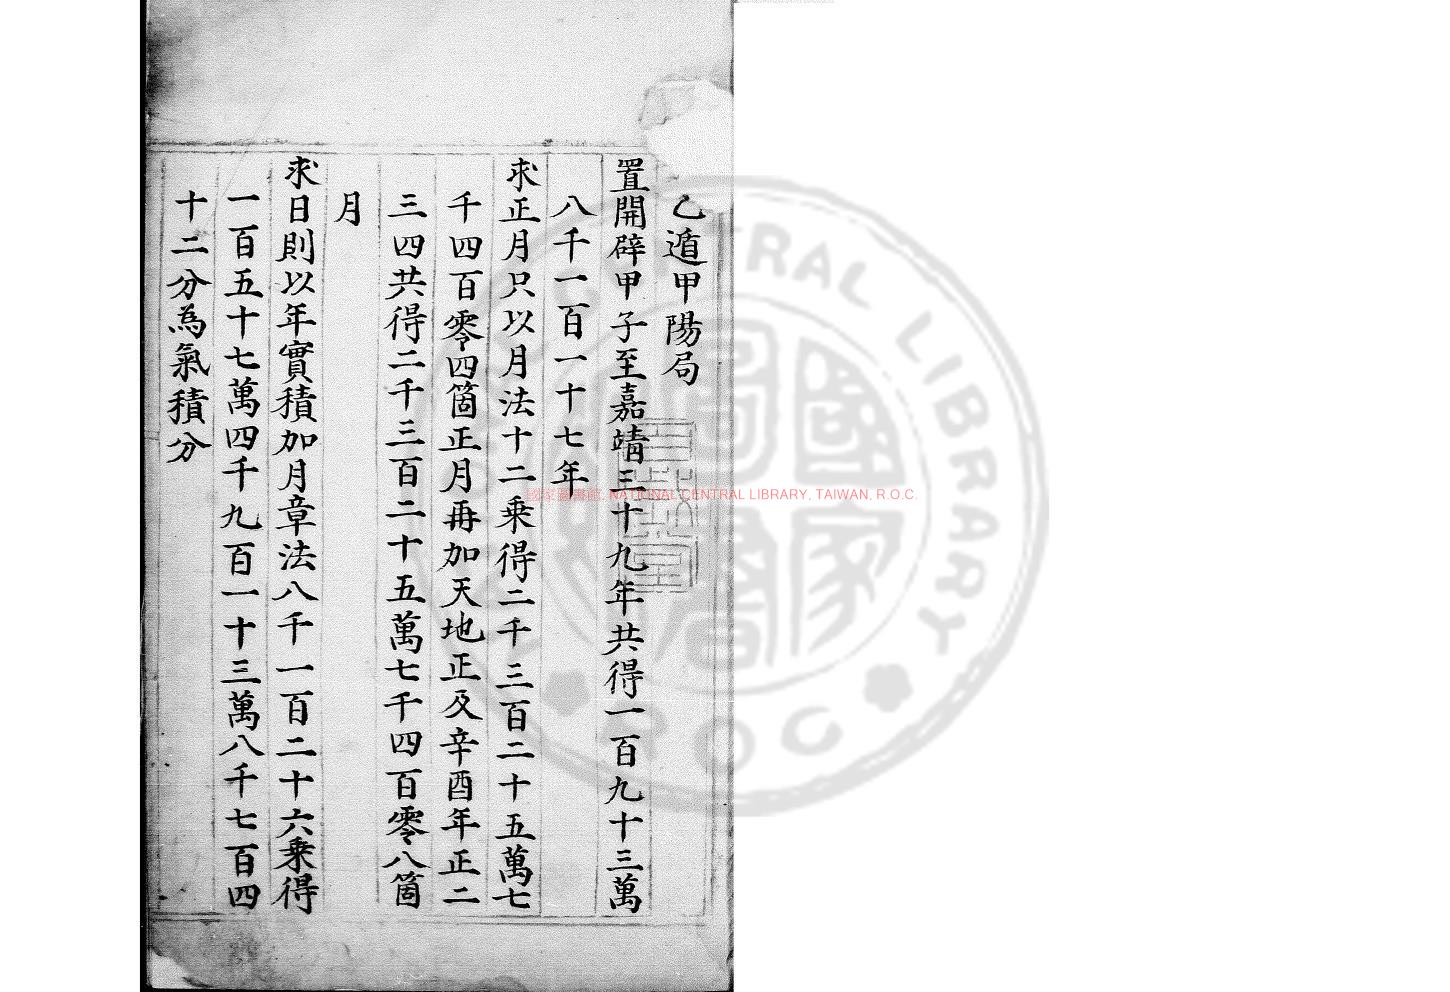 乙遁甲陽局
置開辟甲子至嘉靖三十九年共得一百九十三萬
八千一百一十七年
求正月只以月法十二乘得二千三百二十五萬七
千四百零四箇正月再加天地正及辛酉年正二
三四共得二千三百二十五萬七千四百零八箇
月
求日則以年實積加月章法八千一百二十六乘得
一百五十七萬四千九百一十三萬八千七百四
十二分為氣積分
國家圖書館, NATIONAL CENTRAL LIBRARY, TAIWAN, R.O.C.
CENTRAL LIBRARY
ROC
國家圖書